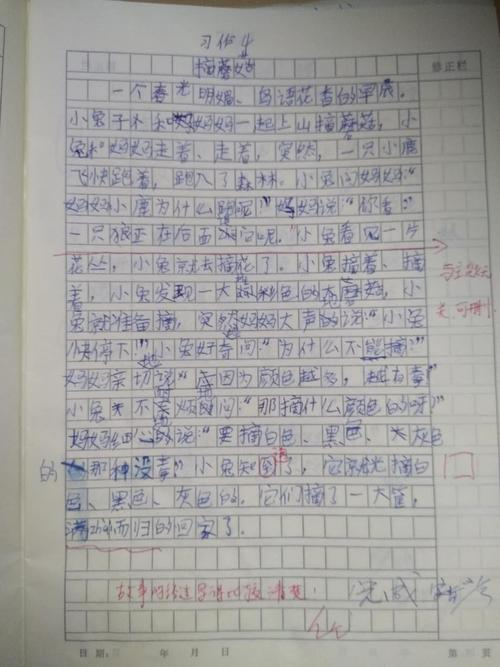 习作4
摘蘑菇
修正栏
一个春光明媚、鸟语花香的早晨，
小兔子和妈妈一起上山摘蘑菇，小
兔和妈妈走着、走着，突然，一只小鹿
飞快跑着，跑入了森林。小兔问妈妈：“
妈妈小鹿为什么跑呢？”妈妈说：“你看：
一只狼正在后面追它呢。”小兔看见一片
花丛，小兔就去摘花了。小兔摘着、摘
着，小兔发现一大堆彩色的大蘑菇，小
兔就准备摘，突然妈妈大声的说：“小兔
快停下！”小兔好奇地问：“为什么不能摘？”
妈妈亲切地说“因为颜色越多，越有毒”
小兔不耐烦的问：“那摘什么颜色的呀？”
妈妈细心的说：“要摘白色、黑色、灰色
的那种没毒”小兔知道了，它摘白
色、黑色、灰色的。它们摘了一大筐，
满而归的回家了。
与主题无
关，可删！
故事的经过写得比较清楚
日期： 年 月 日
第 页